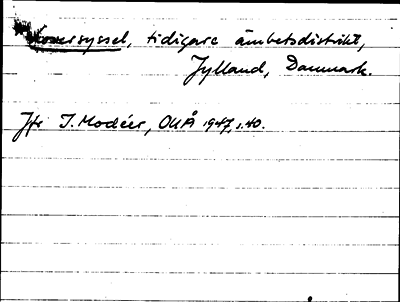 tidigare ämbetsdistrikt,
Jylland, Danmark.
Jfr I. Modéer, OUÅ 1947, s. 40.